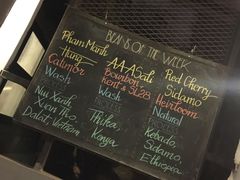 BEANS OF THE WEEK
Pham Manh
Hung
Catimor
Wash
Nui Xanh
Xuan Tho
Dalat, Vietnam
AA Asali
Bourbon,
Kent & SL28
Wash
Thika,
Kenya
Red Cherry
Sidamo
Heirloom
Natural
Kebado,
Sidamo
Ethiopia